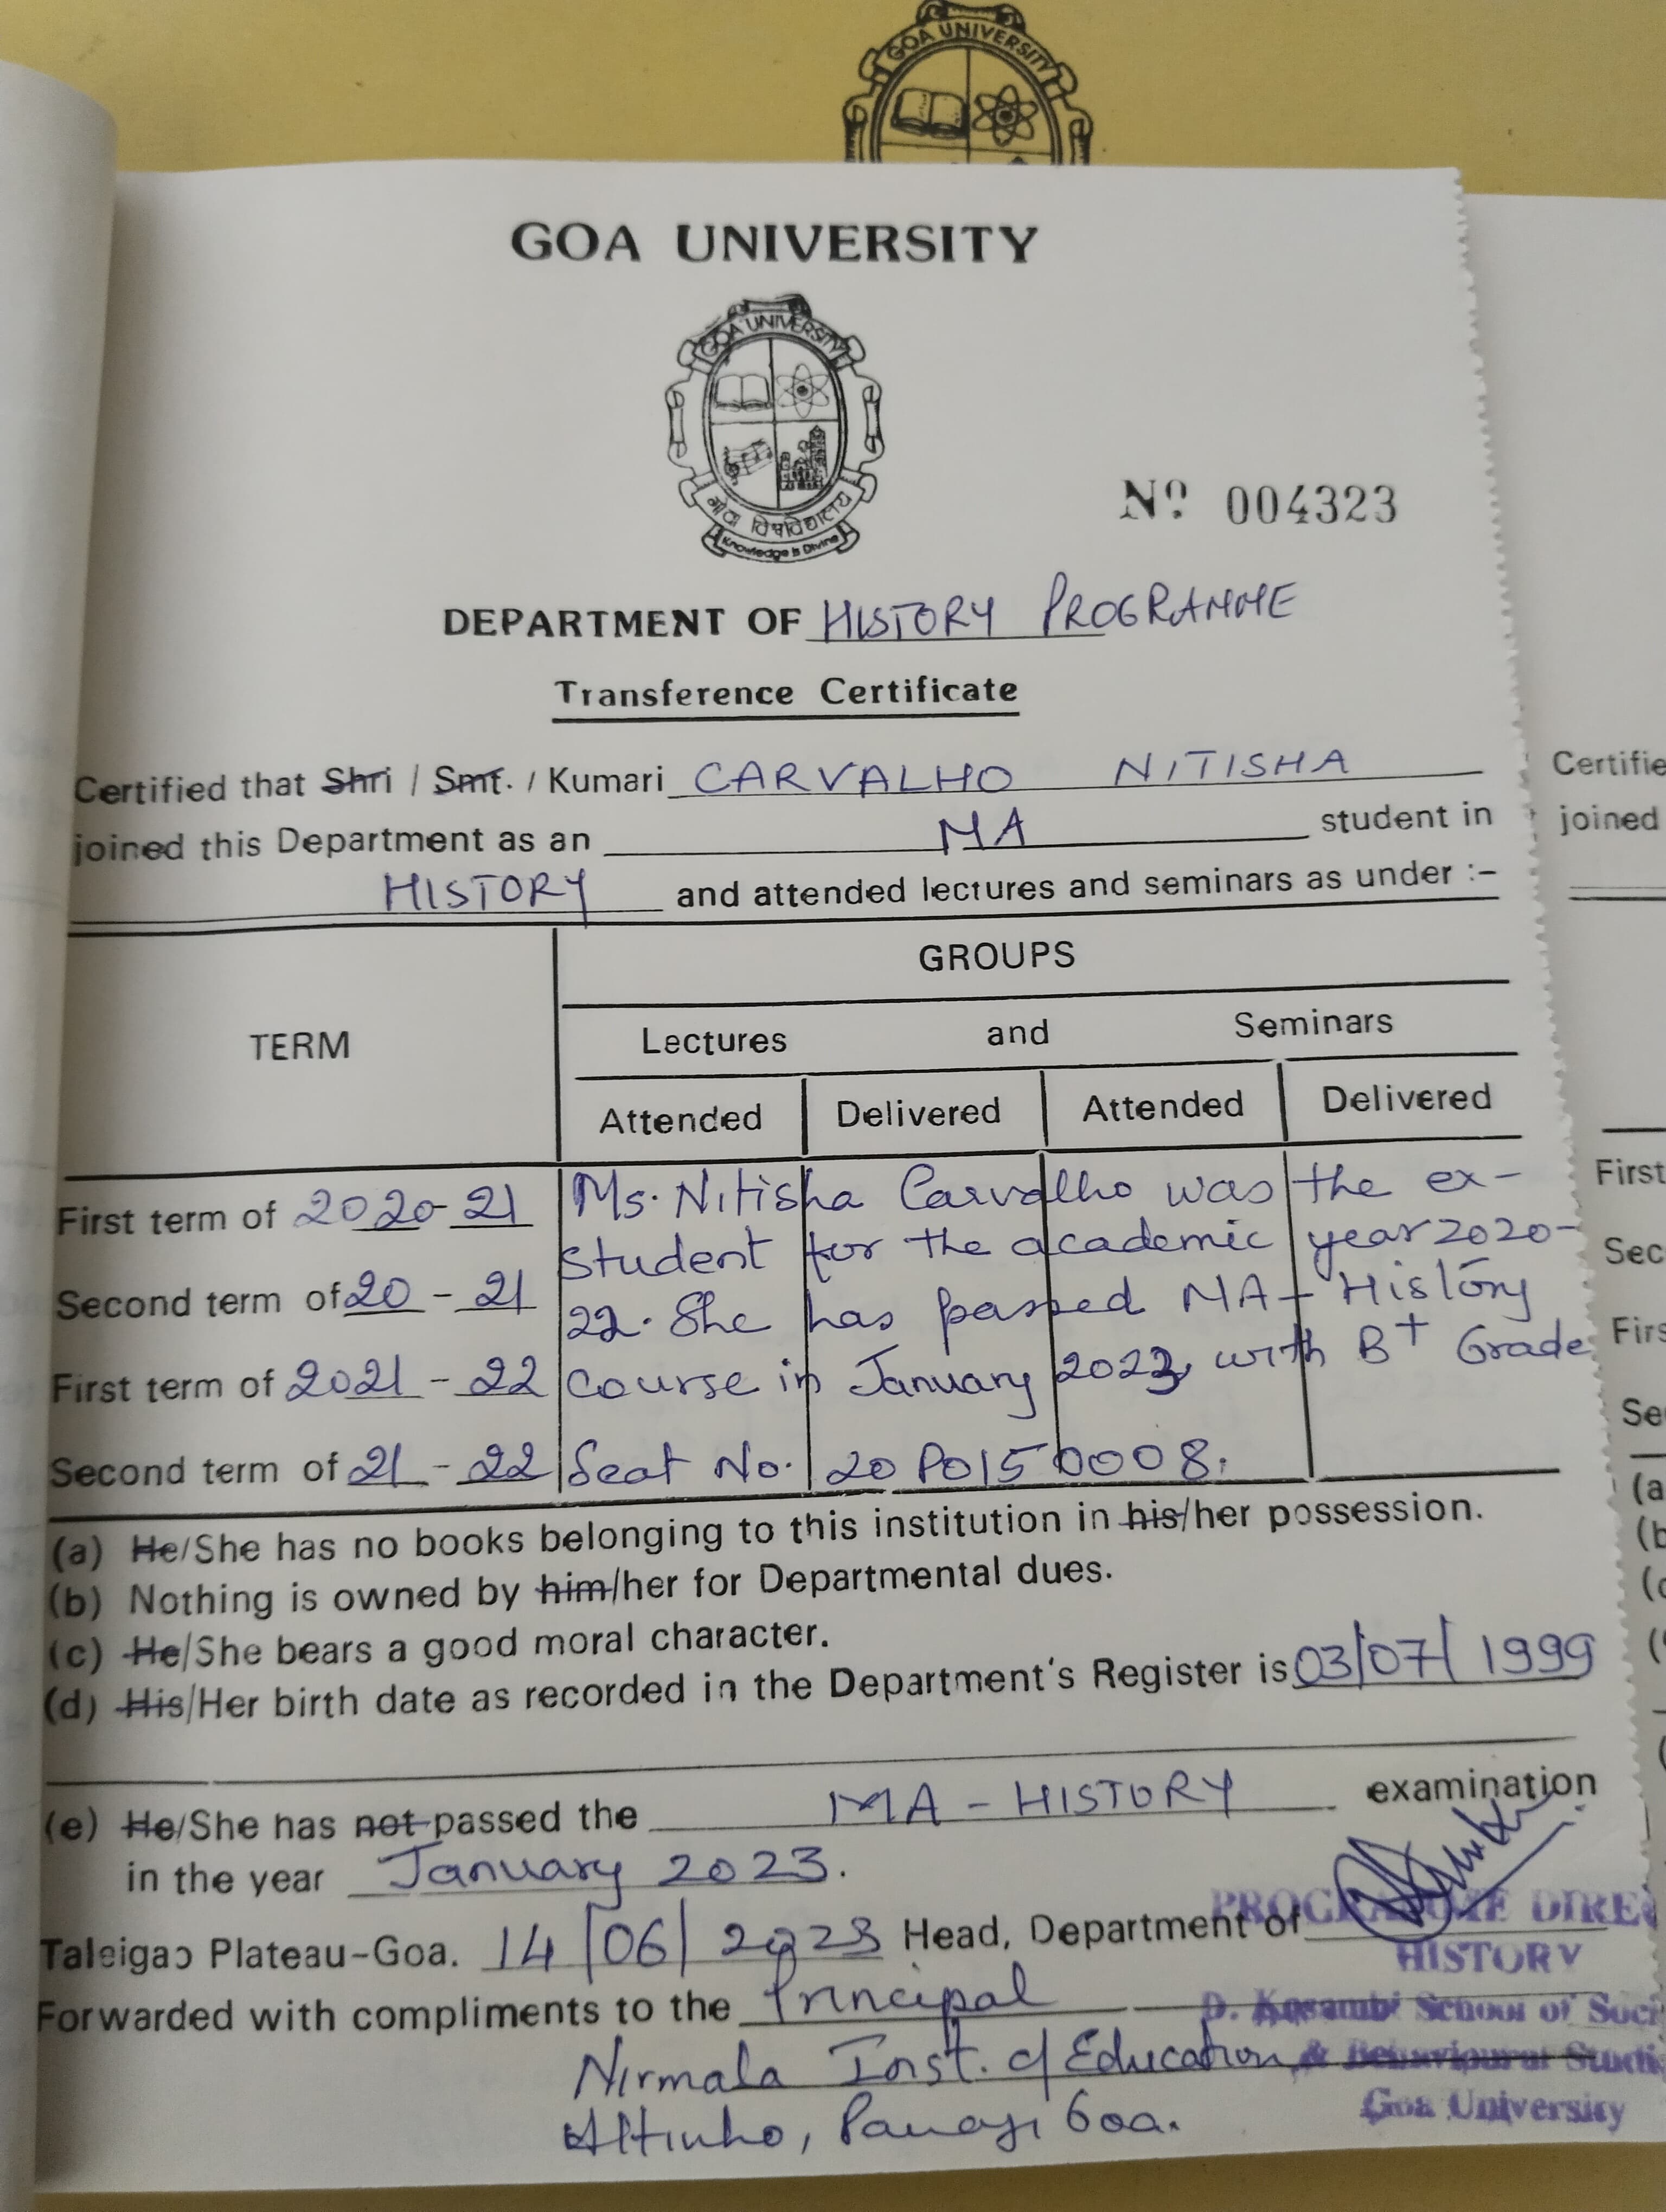 GOA UNIVERSITY
GOA UNIVERSITY
GOA UNIVERSITY
गोंय विश्वविद्यालय
Knowledge is Divine
Nº 004323
DEPARTMENT OF HISTORY PROGRAMME
Transference Certificate
Certified that Shri / Smt. / Kumari CARVALHO NITISHA
joined this Department as an MA student in
HISTORY and attended lectures and seminars as under :-
GROUPS
TERM
Lectures and Seminars
Attended Delivered Attended Delivered
First term of 2020-21 Ms. Nitisha Carvalho was the ex-
student for the academic year 2020-
Second term of 20 - 21
22. She has passed MA - History
First term of 2021 - 22 course in January 2023, with B+ Grade
Second term of 21 - 22 Seat No. 20P0150008.
(a) He/She has no books belonging to this institution in his/her possession.
(b) Nothing is owned by him/her for Departmental dues.
(c) He/She bears a good moral character.
(d) His/Her birth date as recorded in the Department's Register is 03/07/1999
(e) He/She has not passed the MA - HISTORY examination
in the year January 2023.
PROGRAMME DIRE
Taleigao Plateau-Goa. 14/06/2023 Head, Department of
HISTORY
Forwarded with compliments to the Principal
D. Kosambi School of Soci
Nirmala Inst. of Education
& Behavioural Studi
Goa University
Altinho, Panaji Goa.
Certifie
joined
First
Sec
Firs
Se
(a
(b
(c